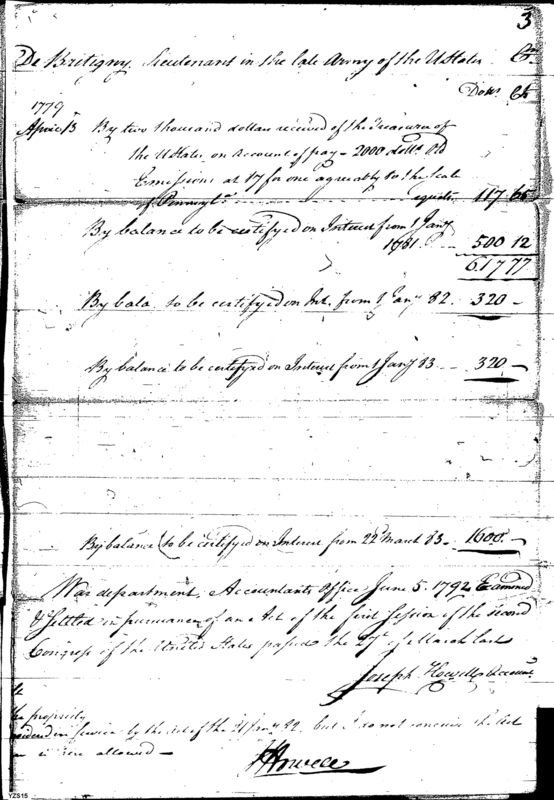 3
De Britigny Lieutenant in the late Army of the U States Cr.
Dolls Cts
1779
April 13 By two thousand dollars received of the Treasurer of
the U States on Account of pay - 2000 dolls Old
Emissions at 17 for one agreeably to the Scale
of Pennsylva equals 117 65
By balance to be certifyed on Interest from 1 Jany
1781 500 12
617 77
By bala to be certifyed on Int. from 1 Jany 82. 320 -
By balance to be certifyed on Interest from 1 Jany 83 320 -
By balance to be certifyed on Interest from 22d March 83 - 1600 -
War department, Accountants Office June 5. 1792 Examined
& Settled in pursuance of an Act of the first Session of the Second
Congress of the United States passed the 27th of March last
Joseph Howell Account
the propriety
in Service by the Act of the 21 Jany 82. but I do not conceive the Act
allowed -
JHowell
YZS15